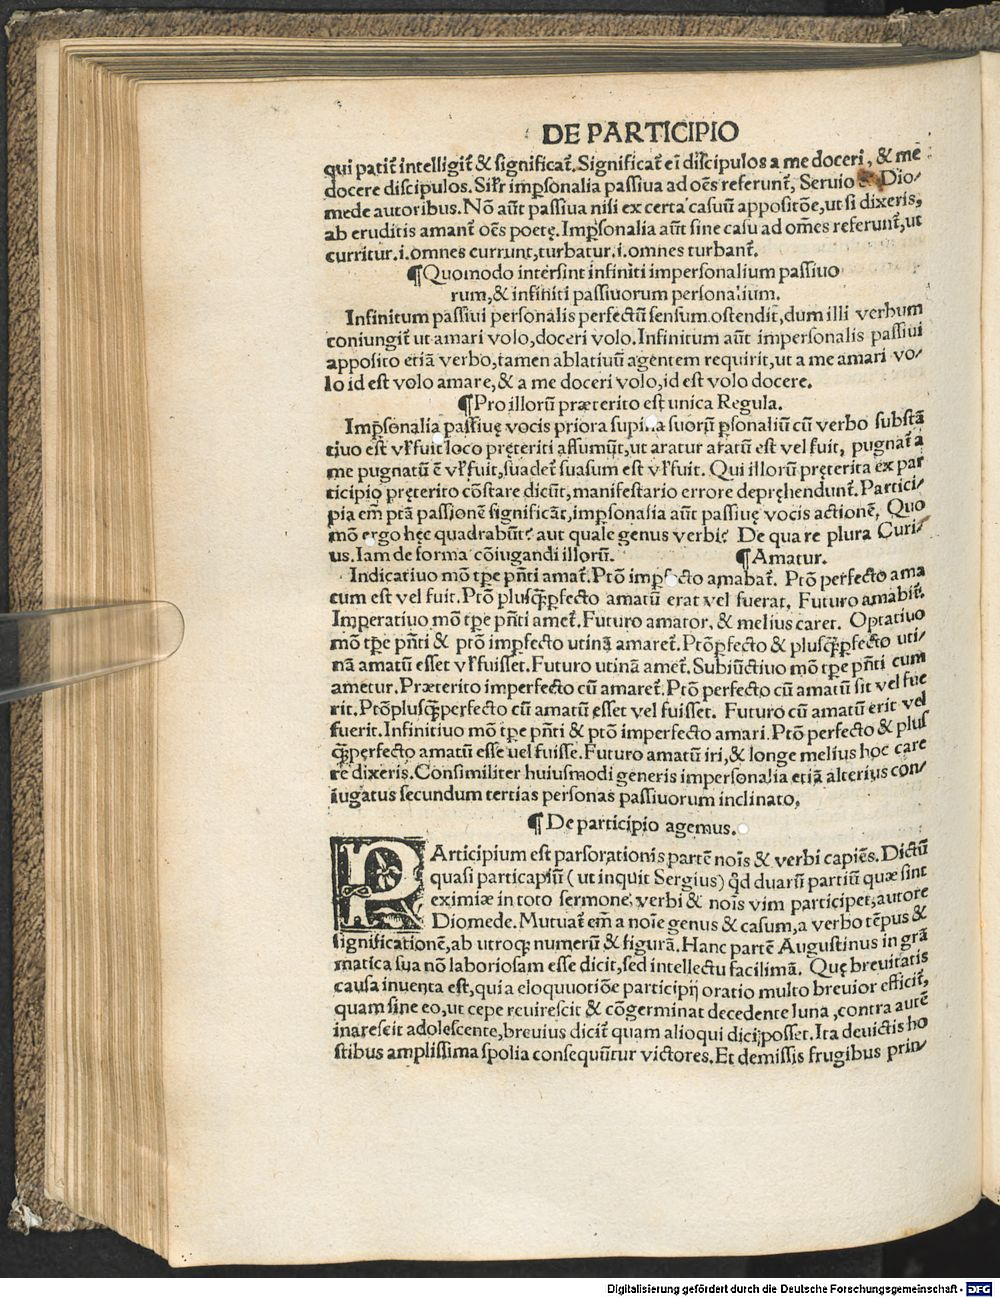 DE PARTICIPIO
qui patit᷑ intelligit᷑ & significat᷑. Significat᷑ eī discipulos a me doceri, & me
docere discipulos. Silr imp̱sonalia passiua ad oēs referunt᷑, Seruio & Dio/
mede autoribus. Nō aūt passiua nisi ex certa casuū appositōe, ut si dixeris,
ab eruditis amant᷑ oēs poetę. Imp̱sonalia aūt sine casu ad om̄es referunt᷑, ut
curritur .i. omnes currunt, turbatur .i. omnes turbant᷑.
¶ Quomodo intersint infiniti impersonalium passiuo
rum, & infiniti passiuorum personalium.
Infinitum passiui personalis perfectū sensum ostendit, dum illi verbum
coniungit᷑ ut amari volo, doceri volo. Infinitum aūt impersonalis passiui
apposito etiā verbo, tamen ablatiuū agentem requirit, ut a me amari vo/
lo id est volo amare, & a me doceri volo, id est volo docere.
¶ Pro illorū præterito est unica Regula.
Imp̱sonalia passiuę vocis priora supina suorū p̱sonaliū cū verbo substā
tiuo est vl᷑ fuit loco pręteriti assumūt, ut aratur aratū est vel fuit, pugnat᷑ a
me pugnatū ē vl᷑ fuit, suadet᷑ suasum est vl᷑ fuit. Qui illorū pręterita ex par
ticipio pręterito cōstare dicūt, manifestario errore depręhendunt᷑. Partici/
pia em̄ ptā passionē significāt, imp̱sonalia aūt passiuę vocis actionē, Quo
mō ergo hęc quadrabūt? aut quale genus verbi? De qua re plura Curi/
us. Iam de forma cōiugandi illorū. ¶ Amatur.
Indicatiuo mō tp̱e pn̄ti amat᷑. Ptō imp̱fecto amabat᷑. Ptō perfecto ama
tum est vel fuit. Ptō plusq̄p̱fecto amatū erat vel fuerat, Futuro amabit᷑.
Imperatiuo mō tp̱e pn̄ti amet᷑. Futuro amator, & melius caret. Optatiuo
mō tp̱e pn̄ti & ptō imp̱fecto utinā amaret᷑. Ptōp̱fecto & plusq̄p̱fecto uti/
nā amatū esset vl᷑ fuisset. Futuro utinā amet᷑. Subiūctiuo mō tp̱e pn̄ti cum
ametur. Præterito imperfecto cū amaret᷑. Ptō perfecto cū amatū sit vel fue
rit. Ptōplusq̄perfecto cū amatū esset vel fuisset. Futuro cū amatū erit vel
fuerit. Infinitiuo mō tp̱e pn̄ti & ptō imperfecto amari. Ptō perfecto & plus
q̄perfecto amatū esse uel fuisse. Futuro amatū iri, & longe melius hoc care
re dixeris. Consimiliter huiusmodi generis impersonalia etiā alterius con/
iugatus secundum tertias personas passiuorum inclinato,
¶ De participio agemus.
PArticipium est pars orationis partē nois̄ & verbi capiēs. Dictū
quasi particapiū ( ut inquit Sergius) qd̄ duarū partiū quæ sint
eximiæ in toto sermone, verbi & nois̄ vim participet, autore
Diomede. Mutuat᷑ em̄ a noīe genus & casum, a verbo tēpus &
significationē, ab utroq; numerū & figurā. Hanc partē Augustinus in grā
matica sua nō laboriosam esse dicit, sed intellectu facilimā. Quę breuitatis
causa inuenta est, quia eloquutiōe participij oratio multo breuior efficit᷑,
quam sine eo, ut cepe reuirescit & cōgerminat decedente luna, contra autē
inarescit adolescente, breuius dicit᷑ quam alioqui dici posset. Ita deuictis ho
stibus amplissima spolia consequūtur victores. Et demissis frugibus prin/
Digitalisierung gefördert durch die Deutsche Forschungsgemeinschaft - DFG